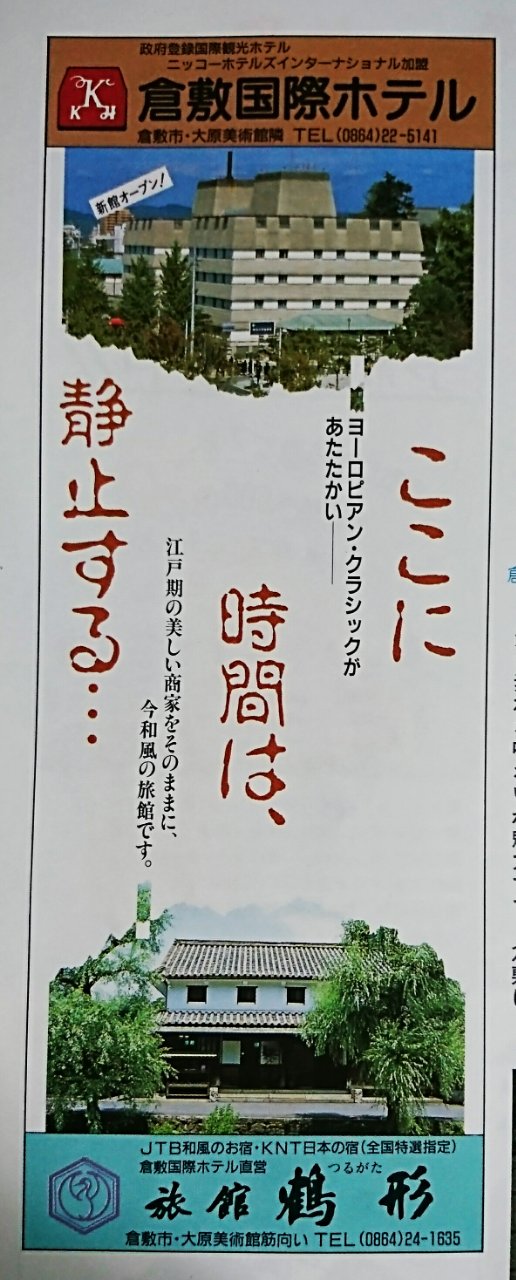 政府登録国際観光ホテル
ニッコーホテルズインターナショナル加盟
K
K H
倉敷国際ホテル
倉敷市・大原美術館隣 TEL(0864)22-5141
新館オープン!
ここに
ヨーロピアン・クラシックが
あたたかい――
時間は、
江戸期の美しい商家をそのままに、
今和風の旅館です。
静止する…
JTB和風のお宿・KNT日本の宿(全国特選指定)
倉敷国際ホテル直営
つるがた
旅館 鶴形
倉敷市・大原美術館筋向い TEL(0864)24-1635